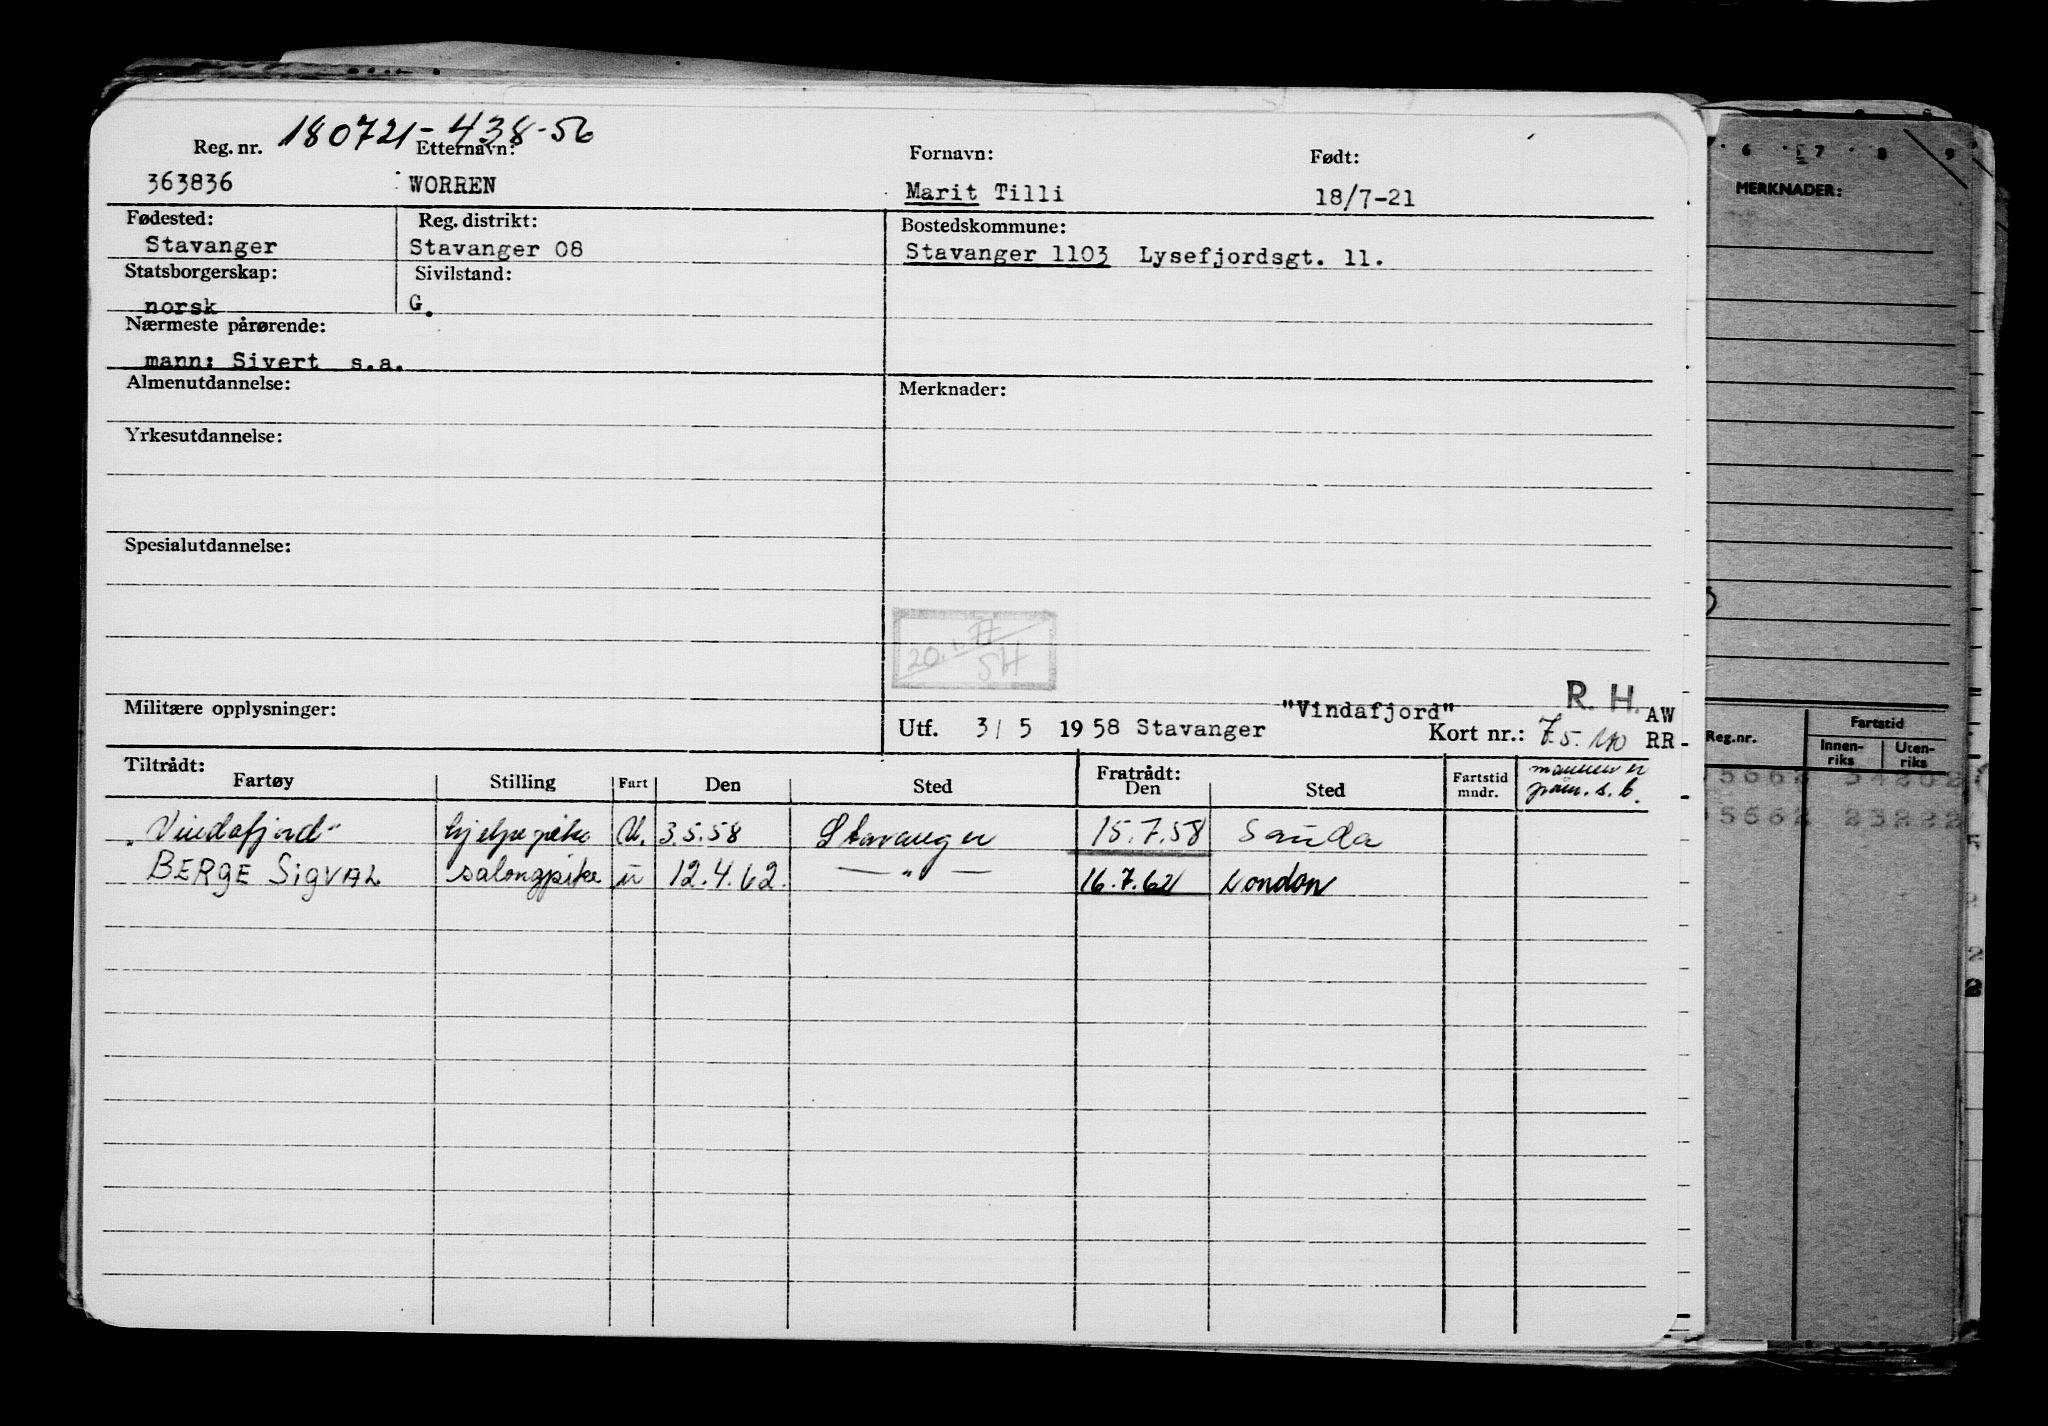 180721-438-56
Reg. nr. Etternavn: Fornavn: Født:
363836 WORREN Marit Tilli 18/7-21
Fødested: Reg. distrikt: Bostedskommune:
Stavanger Stavanger 08 Stavanger 1103 Lysefjordsgt. 11.
Statsborgerskap: Sivilstand:
norsk G.
Nærmeste pårørende:
mann: Sivert s.a.
Almenutdannelse: Merknader:
Yrkesutdannelse:
Spesialutdannelse:
20. SH
R. H.
Militære opplysninger: "Vindafjord" AW
Utf. 3/5 1958 Stavanger Kort nr.: RR
Tiltrådt: Fratrådt:
Fartøy Stilling Fart Den Sted Den Sted Fartstid mndr. mannen er
"Vindafjord" hjelpepike U. 3.5.58 Stavanger 15.7.58 Sauda
BERGE SIGVAL salongpike u 12.4.62. — " — 16.7.62 London
6 7 8 9
MERKNADER:
Reg.nr. Fartstid
Innen- Uten-
riks riks